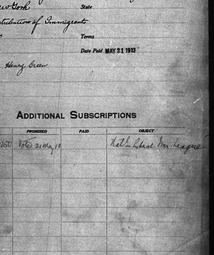 New York State
Distribution of Immigrants
Terms
Date Paid MAY 21 1913
Henry Green
ADDITIONAL SUBSCRIPTIONS
PROMISED PAID OBJECT
Voted 21 May 13 Nat'l Liberal Imm. League